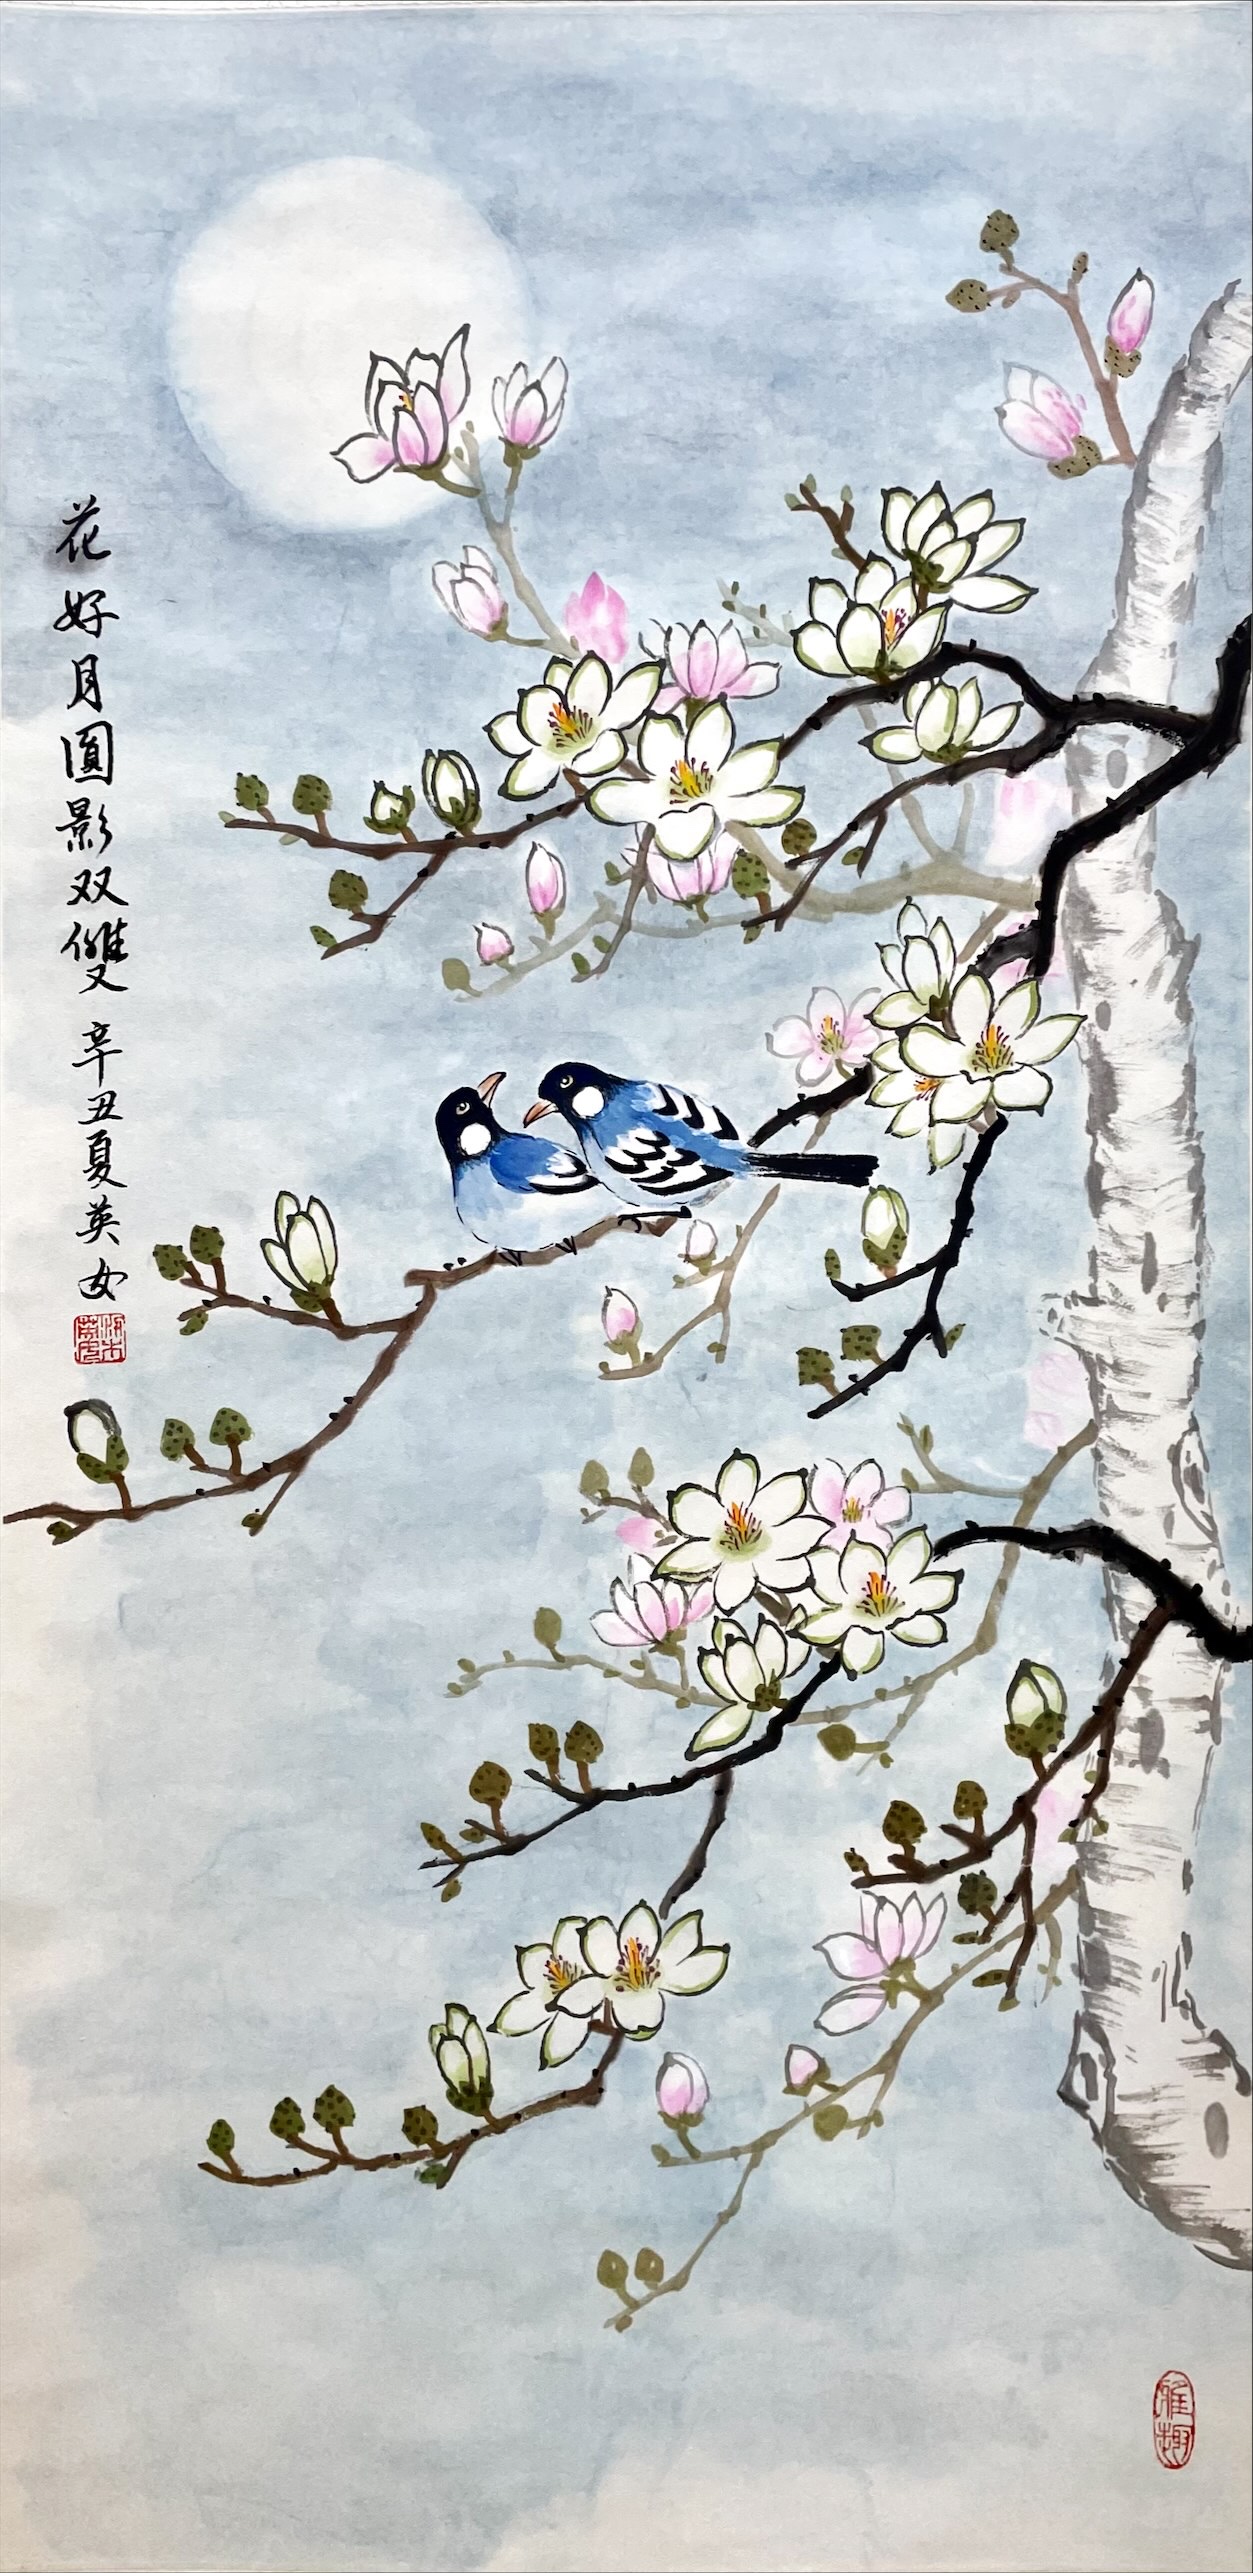 花好月圓影双雙 辛丑夏英女
雅趣